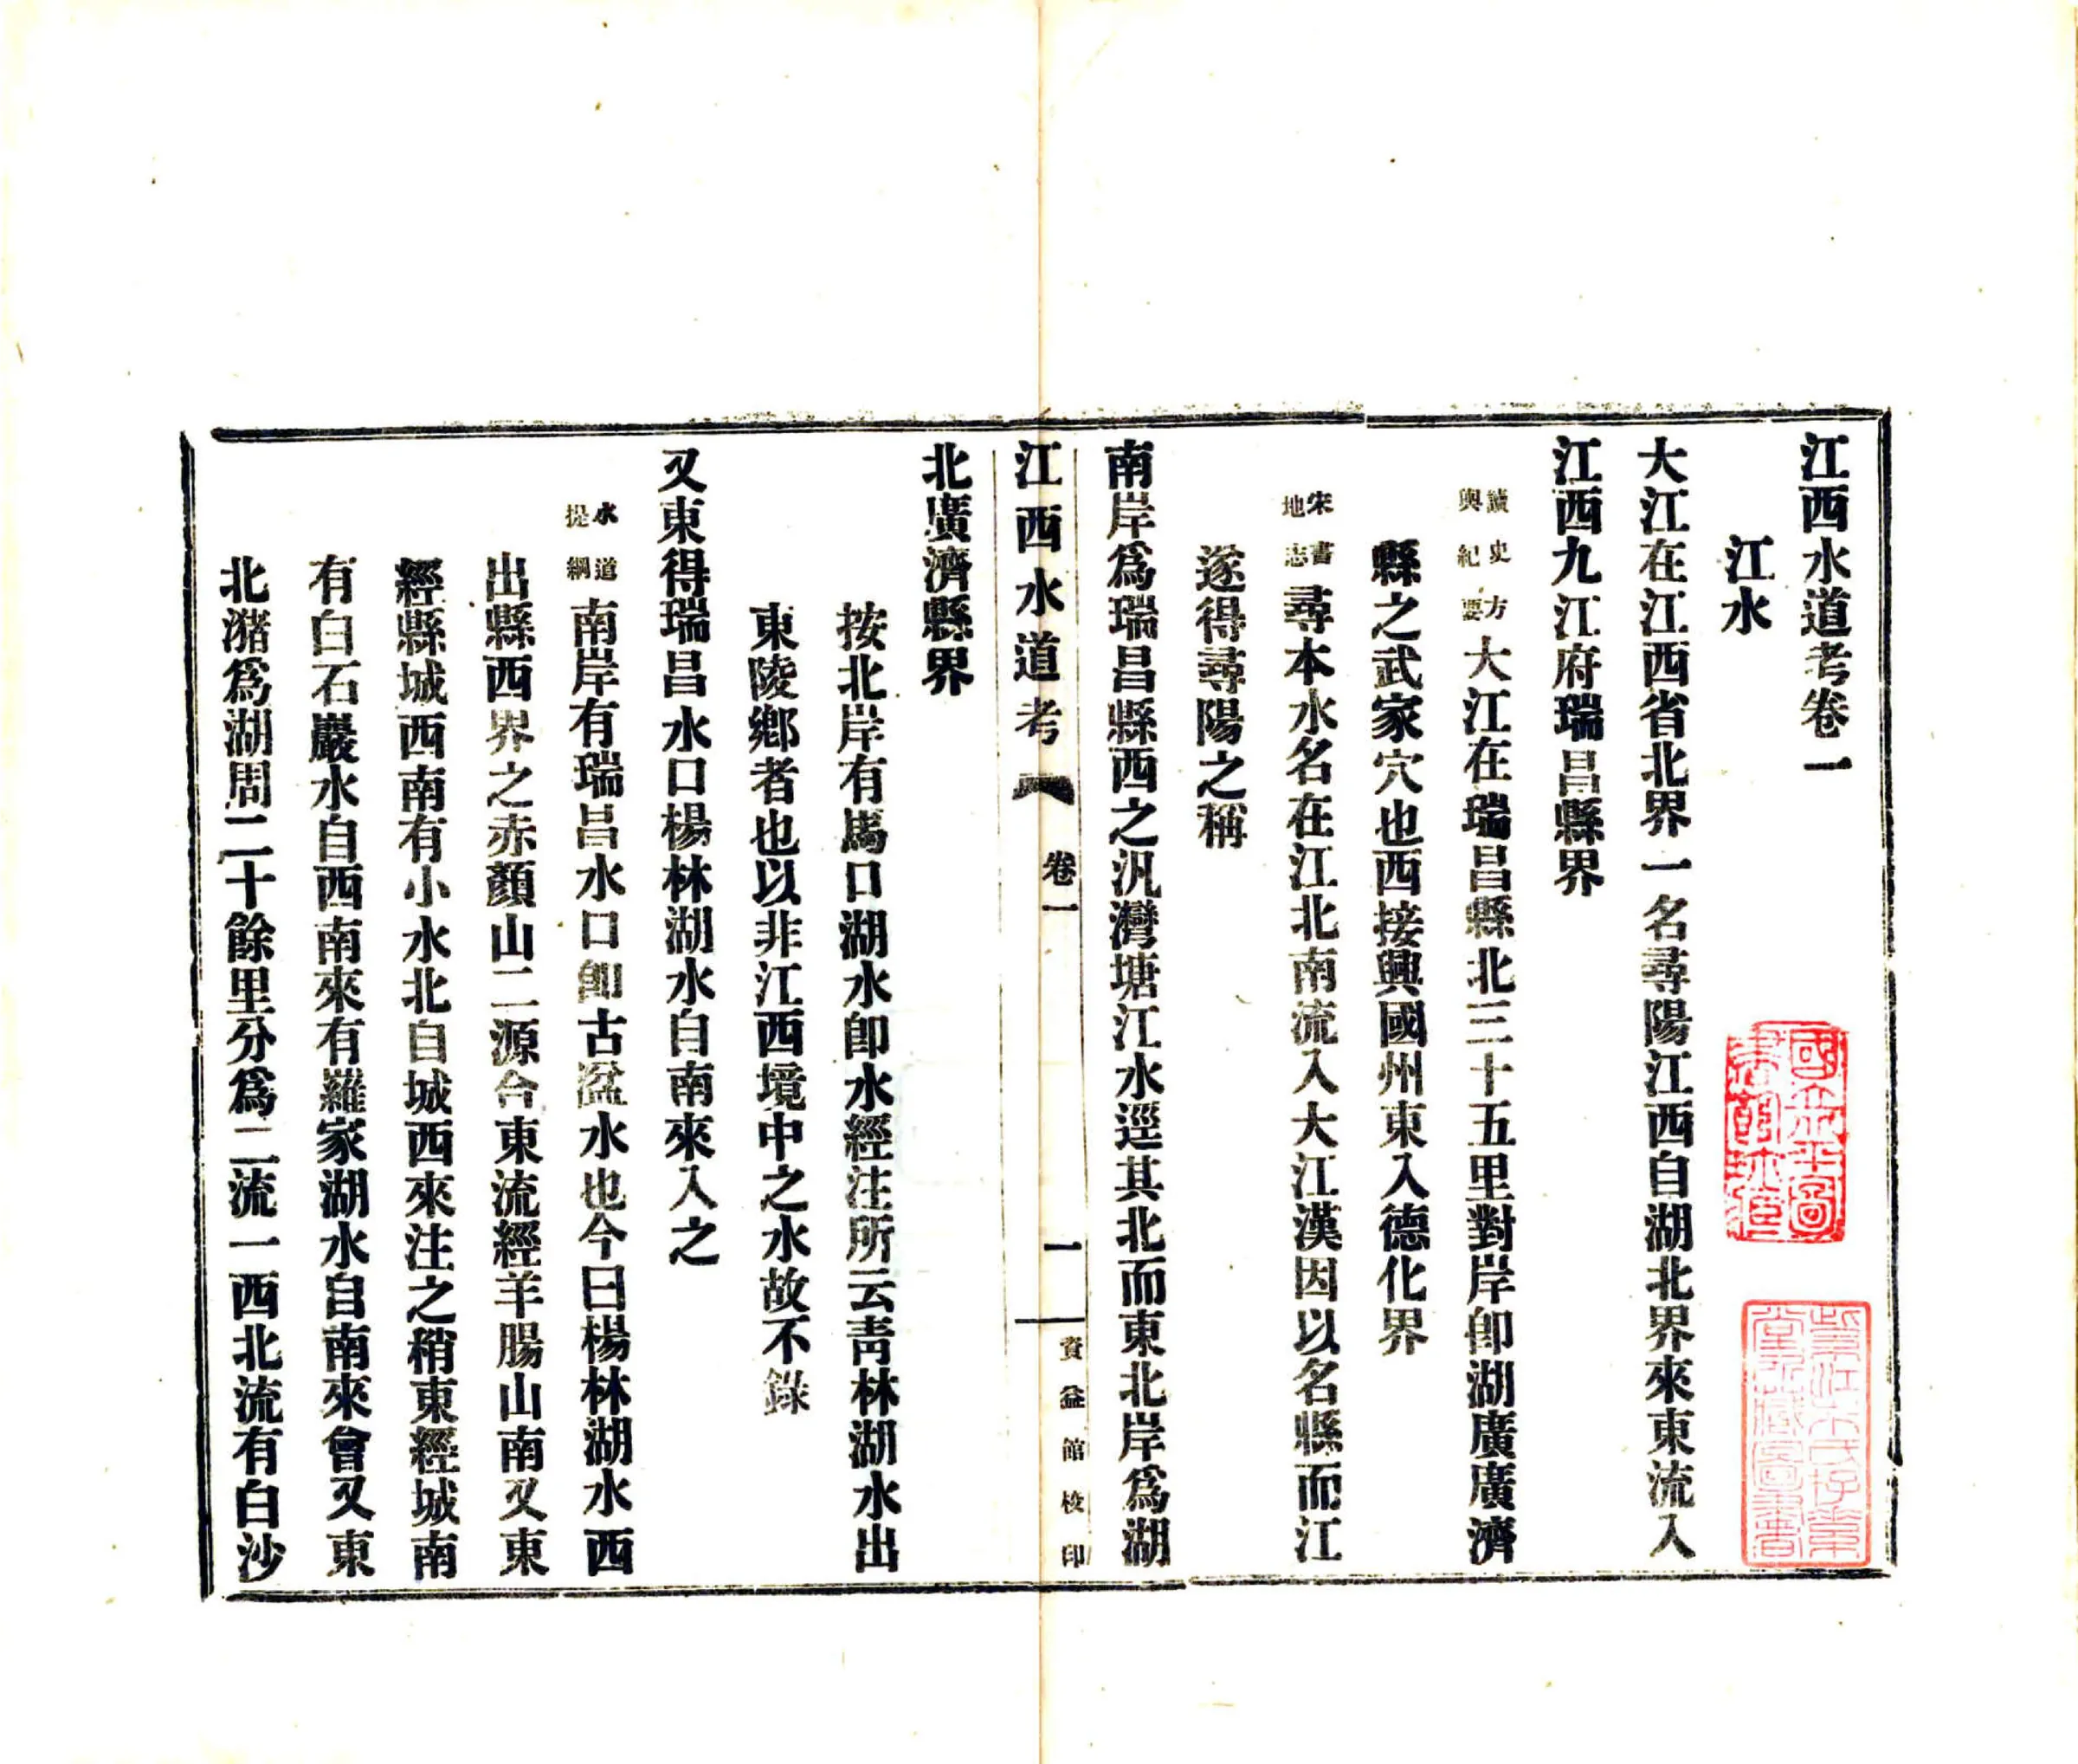 江西水道考卷一
江水
大江在江西省北界一名尋陽江西自湖北界來東流入
江西九江府瑞昌縣界
讀史方輿紀要大江在瑞昌縣北三十五里對岸卽湖廣廣濟
縣之武家穴也西接興國州東入德化界
宋書地志尋本水名在江北南流入大江漢因以名縣而江
遂得尋陽之稱
南岸爲瑞昌縣西之汎灣塘江水逕其北而東北岸爲湖
江西水道考 卷一 一 資益館校印
北廣濟縣界
按北岸有馬口湖水卽水經注所云靑林湖水出
東陵鄕者也以非江西境中之水故不錄
又東得瑞昌水口楊林湖水自南來入之
水道提綱南岸有瑞昌水口卽古湓水也今曰楊林湖水西
出縣西界之赤顏山二源合東流經羊腸山南又東
經縣城西南有小水北自城西來注之稍東經城南
有白石巖水自西南來有羅家湖水自南來會又東
北瀦爲湖周二十餘里分爲二流一西北流有白沙